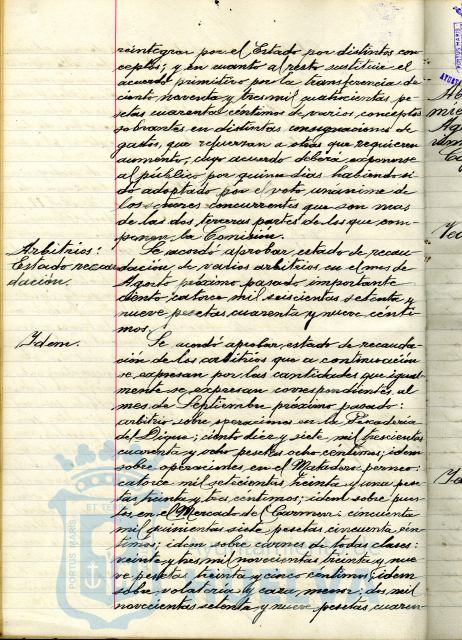 reintegrar por el Estado por distintos con-
ceptos; y en cuanto al resto sustituir el
acuerdo primitivo por la transferencia de
ciento noventa y tres mil cuatrocientas pe-
setas cuarenta céntimos de varios conceptos
sobrantes en distintas consignaciones de
gastos, que refuerzan a otras que requieren
aumento, cuyo acuerdo deberá exponerse
al público por quince días habiendo si-
do adoptado por el voto unánime de
los señores concurrentes que son mas
de las dos terceras partes de los que com-
ponen la Comisión.
Arbitrios:
Estado recau-
dación.
Se acordó aprobar estado de recau-
dación de varios arbitrios en el mes de
Agosto próximo pasado importante
ciento catorce mil seiscientas setenta y
nueve pesetas cuarenta y nueve cénti-
mos.
Idem.
Se acordó aprobar estado de recauda-
ción de los arbitrios que a continuación
se expresan por las cantidades que igual-
mente se expresan correspondientes al
mes de Septiembre próximo pasado:
arbitrio sobre operaciones en la Pescadería
del Dique; ciento diez y siete mil trescientas
cuarenta y ocho pesetas ocho céntimos; idem
sobre operaciones en el Matadero
catorce mil setecientas treinta y una pese-
tas treinta y tres céntimos; idem sobre pues-
tos en el Mercado del Carmen: cincuenta
mil quinientas siete pesetas cincuenta cén-
timos; idem sobre carnes de todas clases:
veinte y tres mil novecientas treinta y nue-
ve pesetas treinta y cinco céntimos; idem
sobre volatería y caza menor: dos mil
novecientas setenta y nueve pesetas cuaren-